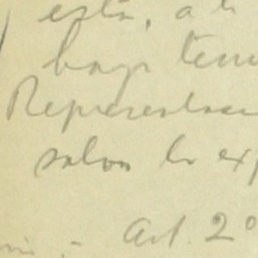 esta, a l
bajo tem
Representac
salvo lo exp
Art. 2º